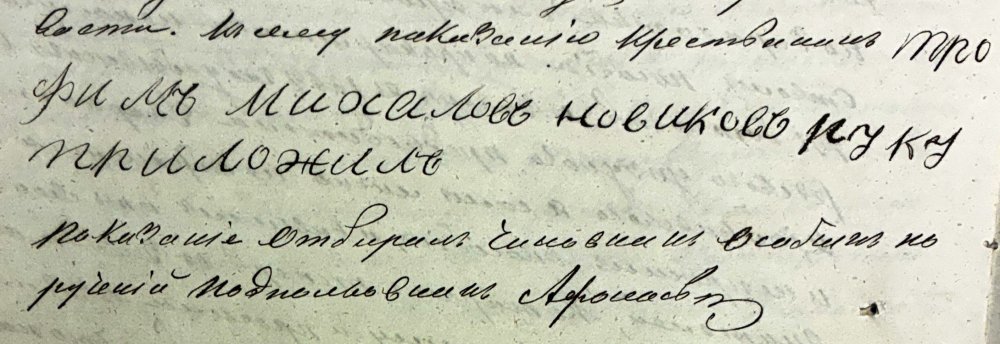 вости. К сему показанію крестьянинъ Тро
фимъ Михаловъ Новиковъ руку
приложилъ
показаніе отбиралъ чиновникъ особыхъ по
рученій подполковникъ Афонасьев